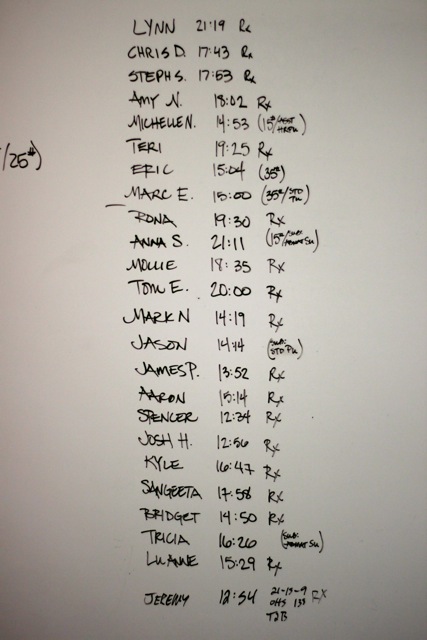 LYNN 21:19 Rx
CHRIS D. 17:43 Rx
STEPH S. 17:53 Rx
AMY N. 18:02 Rx
MICHELLE N. 14:53 (15#/ASST HRPU)
/25#)
TERI 19:25 Rx
ERIC 15:04 (35#)
MARC E. 15:00 (35#/STD PU)
RONA 19:30 Rx
ANNA S. 21:11 (15#/SUB:
MOLLIE 18:35 Rx
TOM E. 20:00 Rx
MARK N 14:19 Rx
JASON 14:14 (SUB: STD PU)
JAMES P. 13:52 Rx
AARON 15:14 Rx
SPENCER 12:34 Rx
JOSH H. 12:56 Rx
KYLE 16:47 Rx
SANGEETA 17:58 Rx
BRIDGET 14:50 Rx
TRICIA 16:26 (SUB:
LUANNE 15:29 Rx
JEREMY 12:54 21-15-9 RX
OHS 135
T2B